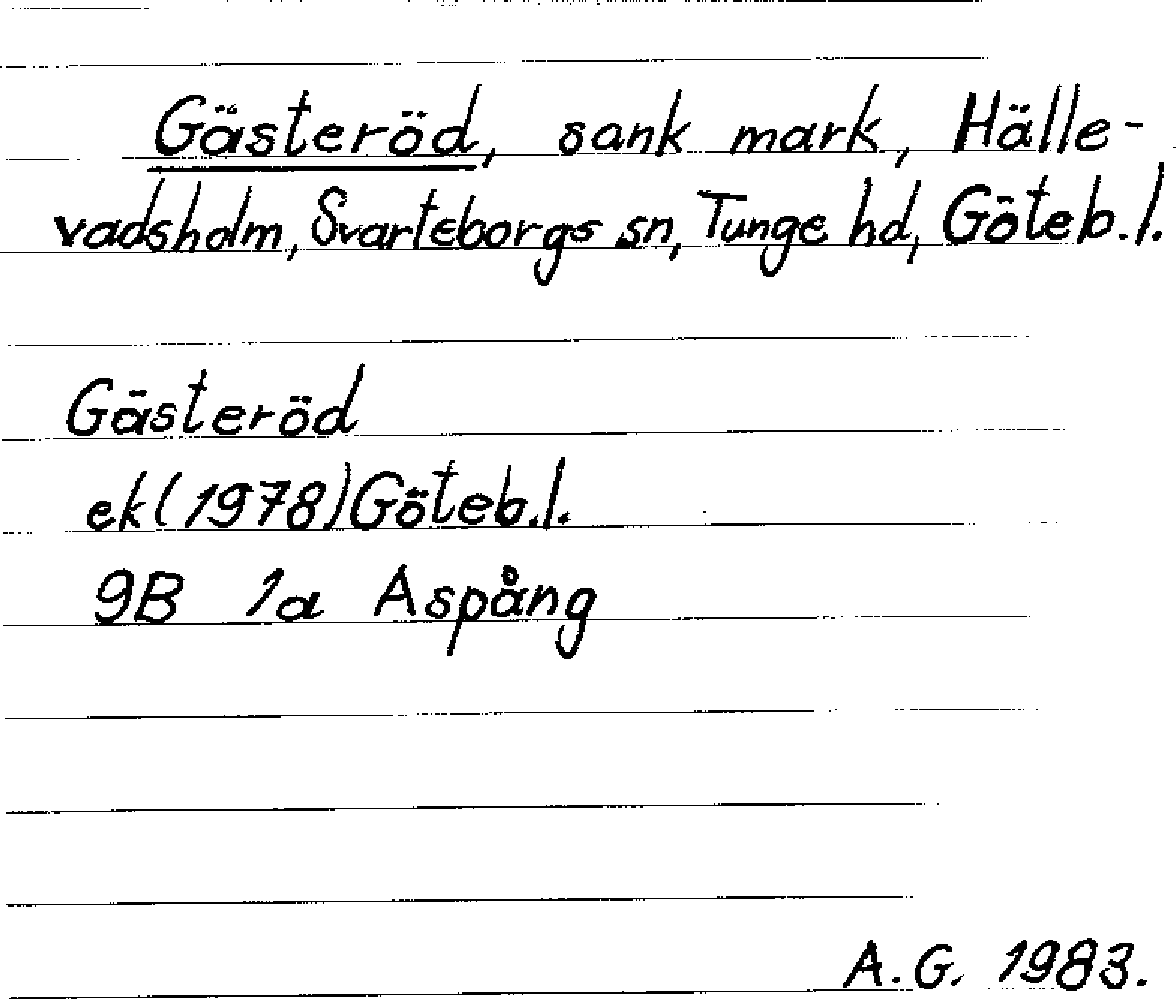 Gästeröd, sank mark, Hälle-
vadsholm, Svarteborgs sn, Tunge hd, Göteb.l.
Gästeröd
ek(1978)Göteb.l.
9B 1a Aspång
A.G. 1983.